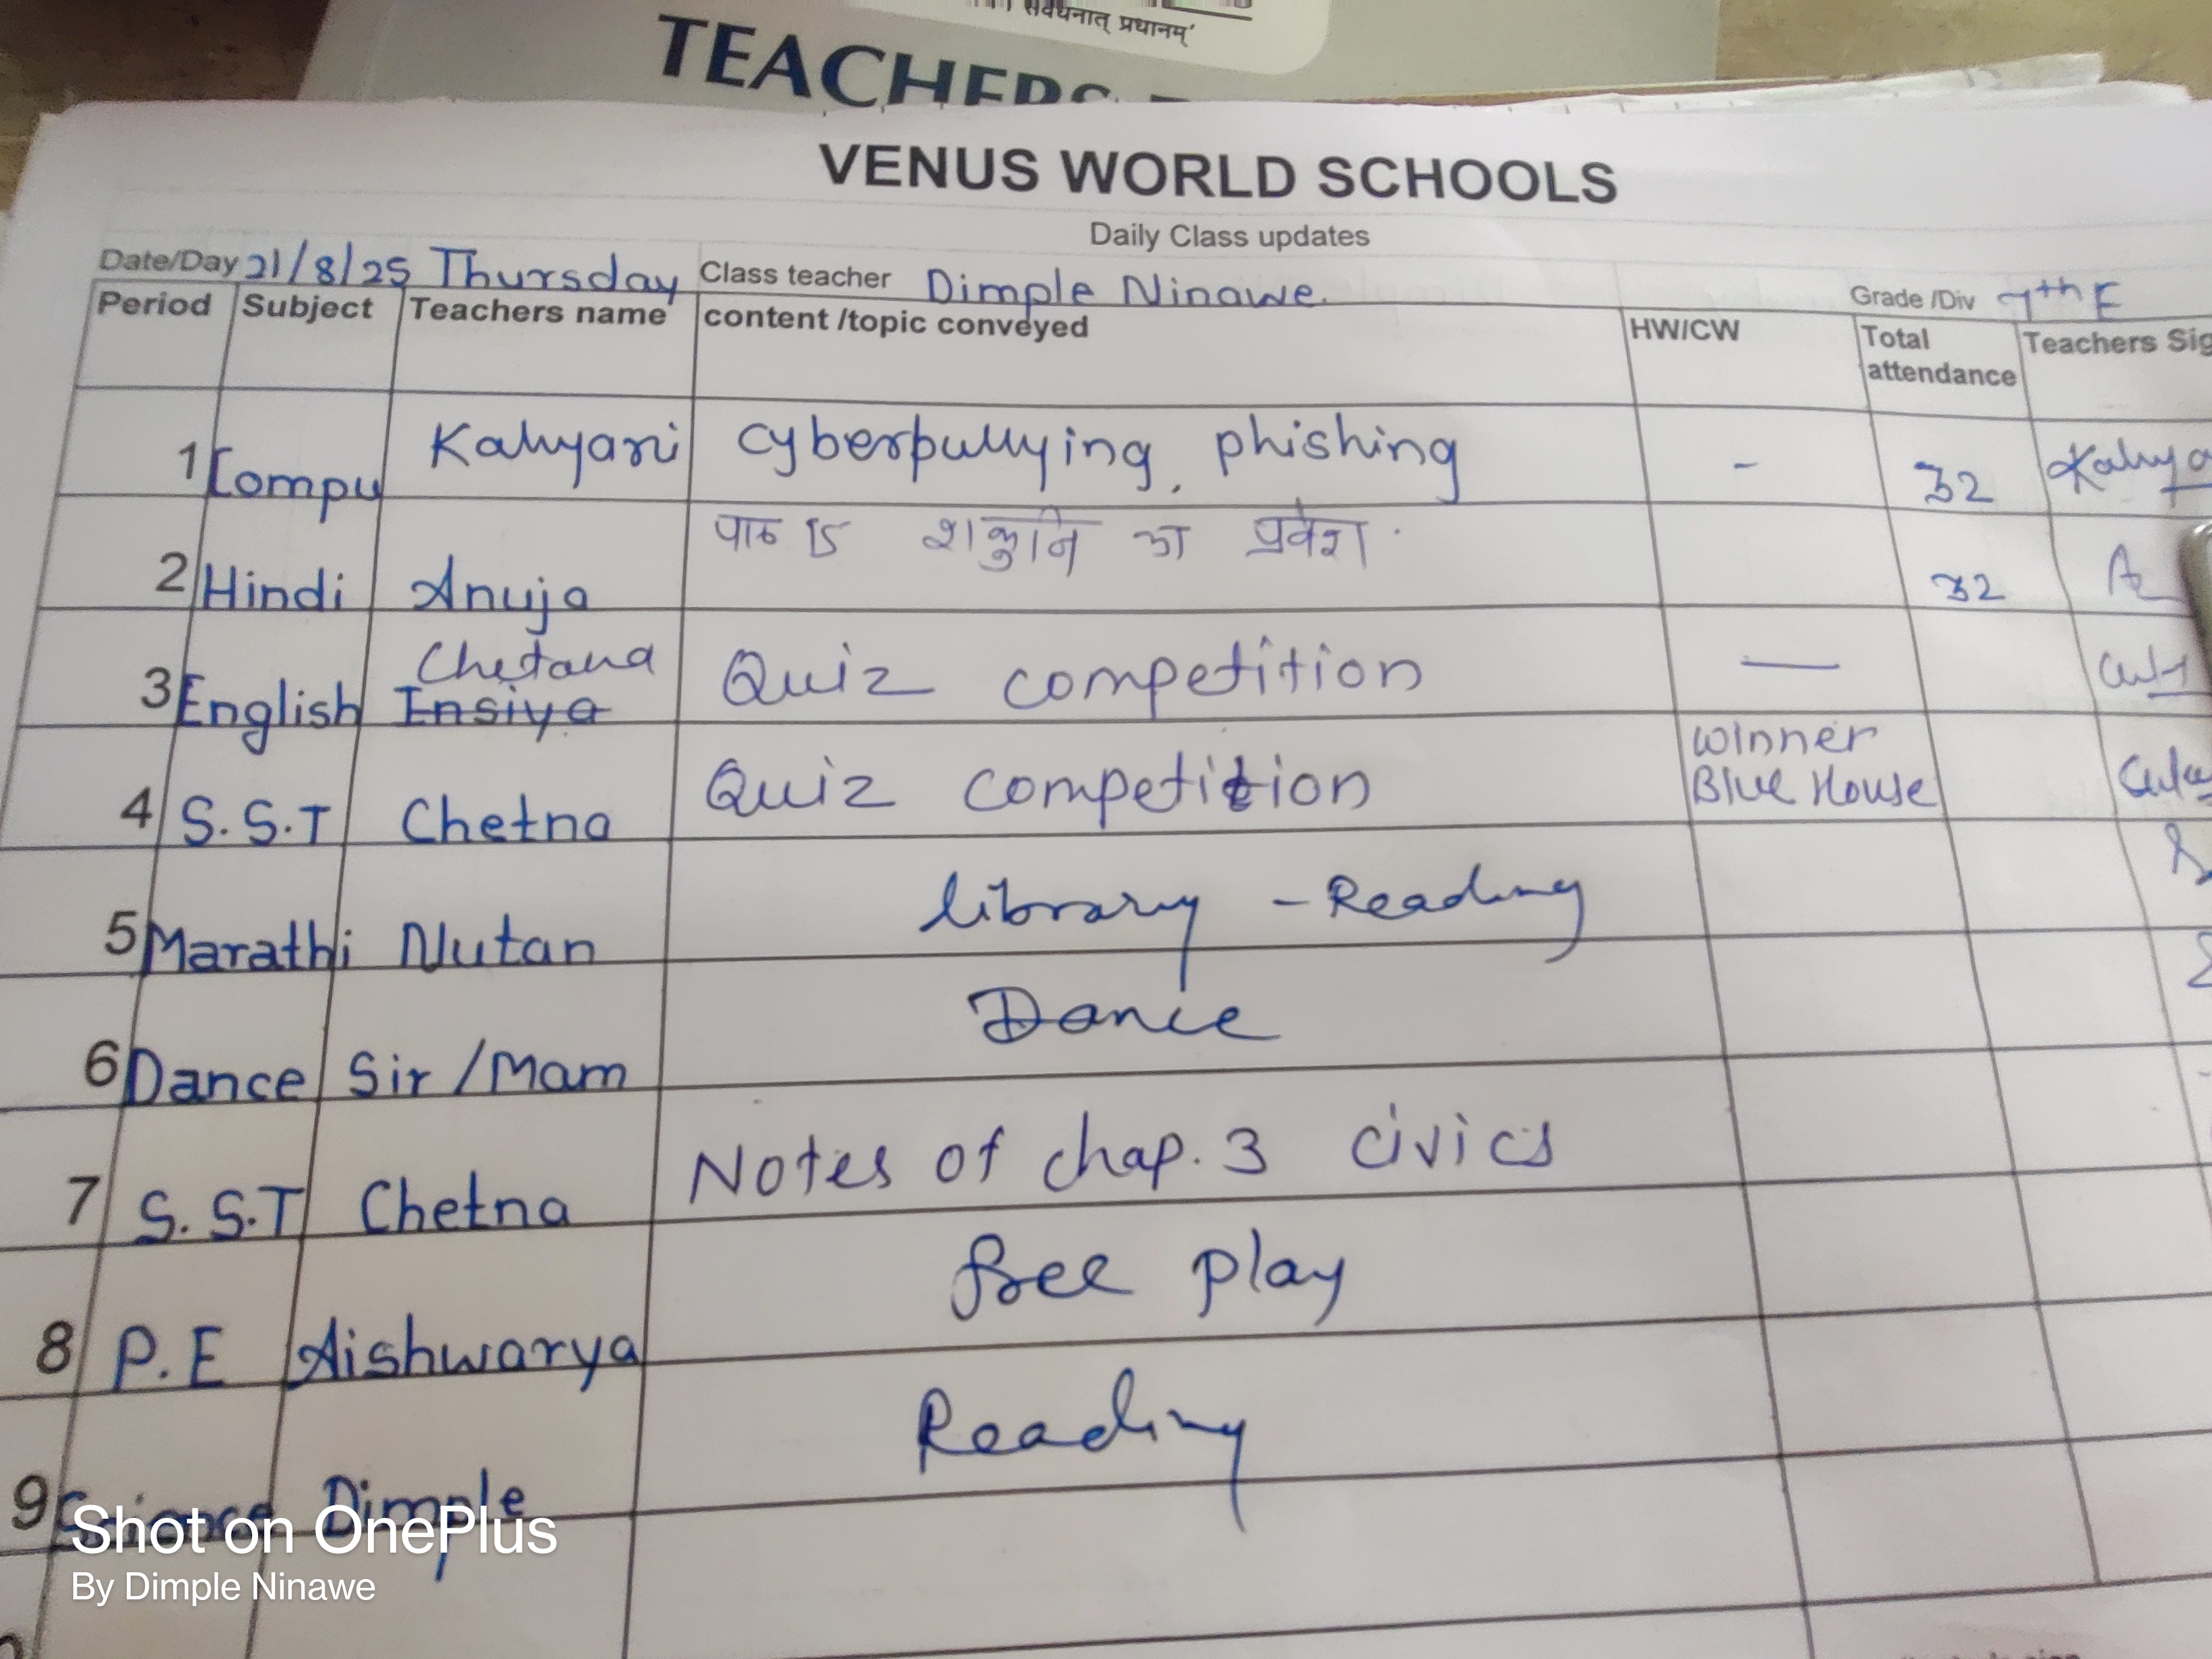 संवर्धनात् प्रधानम्'
TEACHERS
VENUS WORLD SCHOOLS
Daily Class updates
Date/Day 21/8/25 Thursday Class teacher Dimple Ninawe. Grade /Div 7th E
Period Subject Teachers name content /topic conveyed HW/CW Total attendance Teachers Sig
1 Compu Kalyani Cyberbullying, phishing - 32 Kalya
2 Hindi Anuja पाठ 15 शकुनि का प्रवेश. 32
3 English Chetana Insiya Quiz competition —
4 S.S.T Chetna Quiz competition winner Blue House
5 Marathi Nutan library - Reading
6 Dance Sir/Mam Dance
7 S.S.T Chetna Notes of chap. 3 civics
8 P.E Aishwarya free play
9 Science Dimple Reading
Shot on OnePlus
By Dimple Ninawe